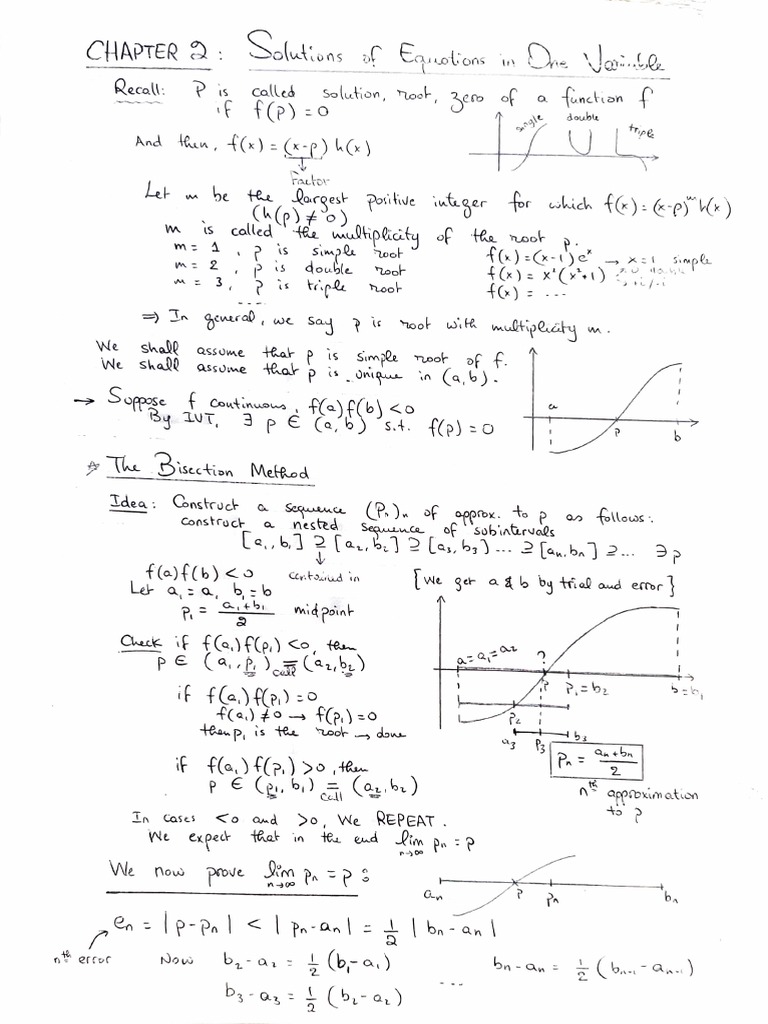 CHAPTER 2: Solutions of Equations in One Variable
Recall: P is called solution, root, zero of a function f
if f(p) = 0
single double triple
And then, f(x) = (x-p) h(x)
Factor
Let m be the largest positive integer for which f(x) = (x-p)^m h(x)
(h(p) ≠ 0)
m is called the multiplicity of the root p.
m = 1, p is simple root f(x) = (x-1) e^x → x=1 simple
m = 2, p is double root f(x) = x²(x²+1)
m = 3, p is triple root f(x) = ...
....
⇒ In general, we say p is root with multiplicity m.
We shall assume that p is simple root of f.
We shall assume that p is unique in (a,b).
→ Suppose f continuous, f(a)f(b) < 0
By IVT, ∃ p ∈ (a,b) s.t. f(p) = 0
a p b
The Bisection Method
Idea: Construct a sequence (Pn)n of approx. to p as follows:
construct a nested sequence of subintervals
[a₁,b₁] ⊇ [a₂,b₂] ⊇ [a₃,b₃] ... ⊇ [an,bn] ⊇ ... ∋ p
↓
contained in
f(a)f(b) < 0 [We get a & b by trial and error]
Let a₁ = a, b₁ = b
p₁ = (a₁+b₁)/2 midpoint
Check if f(a₁)f(p₁) < 0, then
p ∈ (a₁, p₁) = (a₂, b₂)
call
if f(a₁)f(p₁) = 0
f(a₁) ≠ 0 → f(p₁) = 0
then p₁ is the root → done
if f(a₁)f(p₁) > 0, then
p ∈ (p₁, b₁) = (a₂, b₂)
call
a = a₁ = a₂ ? p p₁ = b₂ b = b₁
p₂
a₃ p₃ b₃
pn = (an+bn)/2
nth approximation
to p
In cases <0 and >0, We REPEAT.
We expect that in the end lim pn = p
n→∞
We now prove lim pn = p :
n→∞
an p pn bn
en = |p-pn| < |pn-an| = 1/2 |bn-an|
nth error
Now b₂-a₂ = 1/2 (b₁-a₁) bn-an = 1/2 (bn-1 - an-1)
b₃-a₃ = 1/2 (b₂-a₂) ...